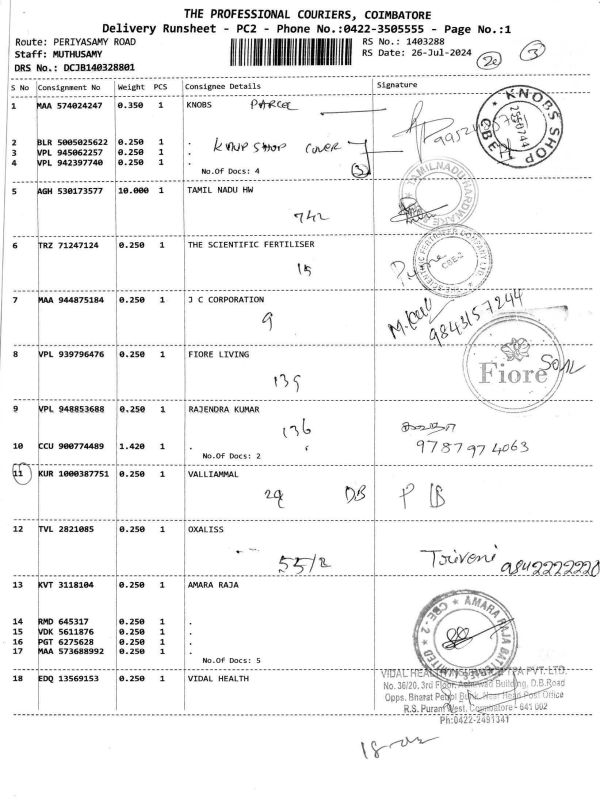 THE PROFESSIONAL COURIERS, COIMBATORE
Delivery Runsheet - PC2 - Phone No.:0422-3505555 - Page No.:1
Route: PERIYASAMY ROAD RS No.: 1403288
Staff: MUTHUSAMY RS Date: 26-Jul-2024
DRS No.: DCJB140328801
S No Consignment No Weight PCS Consignee Details Signature
1 MAA 574024247 0.350 1 KNOBS PARCEL
KNOBS SHOP
CBE
2 BLR 5005025622 0.250 1 .
3 VPL 945062257 0.250 1 . KNUP SHOP COVER
4 VPL 942397740 0.250 1 .
No.Of Docs: 4 3
5 AGH 530173577 10.000 1 TAMIL NADU HW
TAMILNADU HARDWARE
742
6 TRZ 71247124 0.250 1 THE SCIENTIFIC FERTILISER
15
CBE-2
7 MAA 944875184 0.250 1 J C CORPORATION
9
9843157244
8 VPL 939796476 0.250 1 FIORE LIVING
Fiore
139
9 VPL 948853688 0.250 1 RAJENDRA KUMAR
136
9787974063
10 CCU 900774489 1.420 1 .
No.Of Docs: 2
11 KUR 1000387751 0.250 1 VALLIAMMAL
29 DB
12 TVL 2821085 0.250 1 OXALISS
55/2 Triveni 9842222220
13 KVT 3118104 0.250 1 AMARA RAJA
AMARA RAJA BATTERIES LIMITED CBE - 2
14 RMD 645317 0.250 1 .
15 VDK 5611876 0.250 1 .
16 PGT 6275628 0.250 1 .
17 MAA 573688992 0.250 1 .
No.Of Docs: 5
18 EDQ 13569153 0.250 1 VIDAL HEALTH
VIDAL HEALTH INSURANCE TPA PVT. LTD.
No. 36/20, 3rd Floor, Building, D.B.Road
Opps. Bharat Petrol Bunk, Near Head Post Office
R.S. Puram West, Coimbatore - 641 002
Ph:0422-2491341